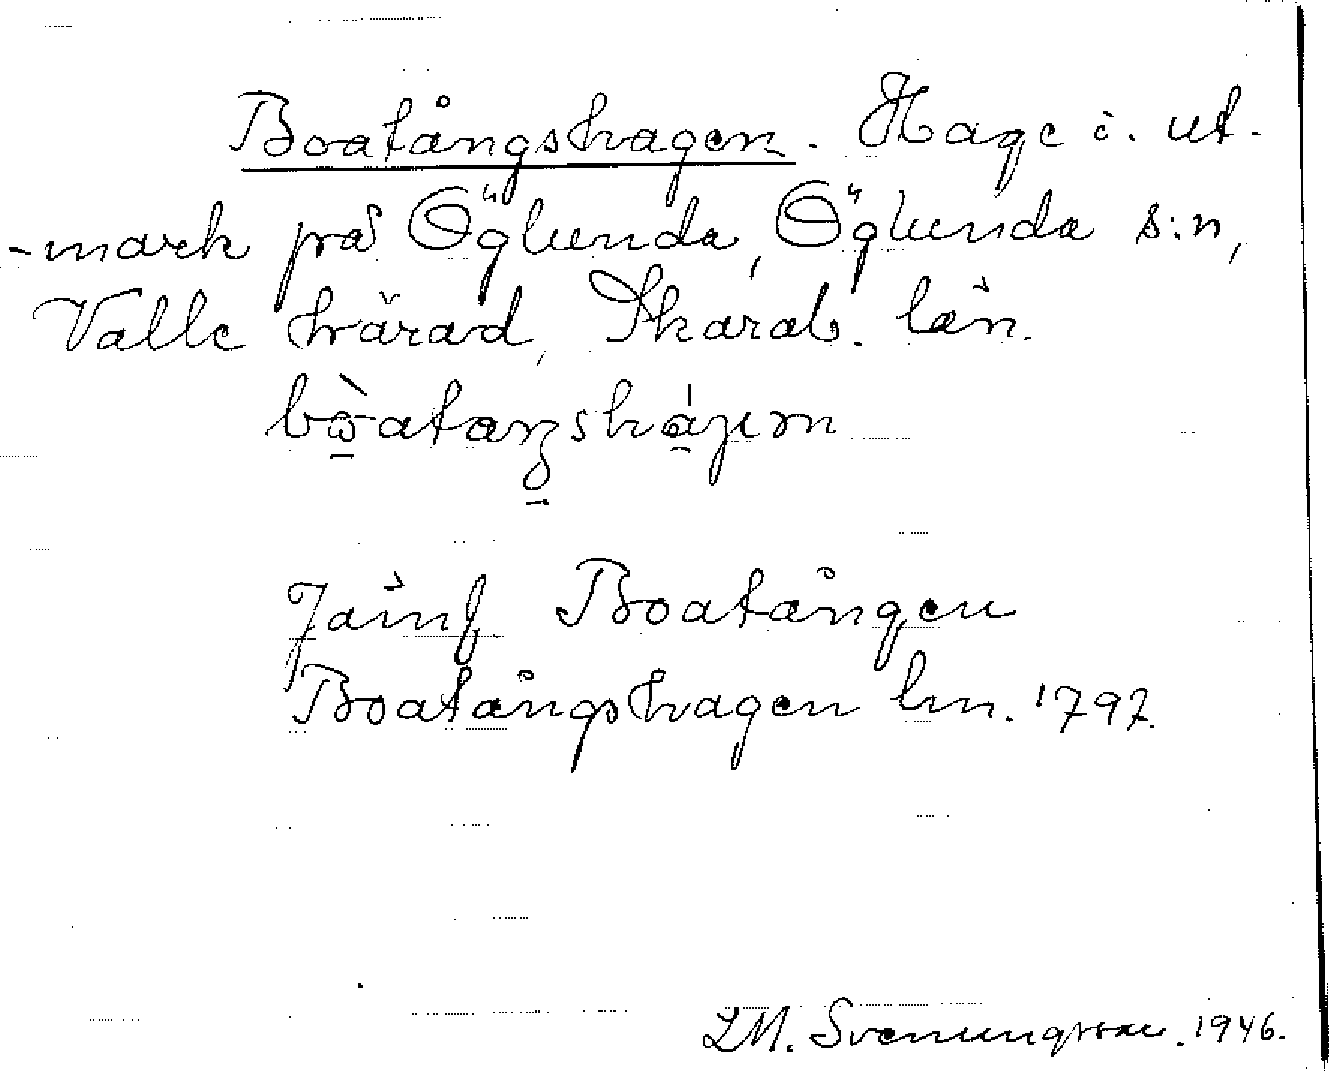 Boatångshagen. Hage i. ut-
-mark på Öglunda, Öglunda s:n,
Valle härad, Skarab. län.
Jämf Boatången
Boatångshagen lm. 1797.
L.M. Svenungsson. 1946.